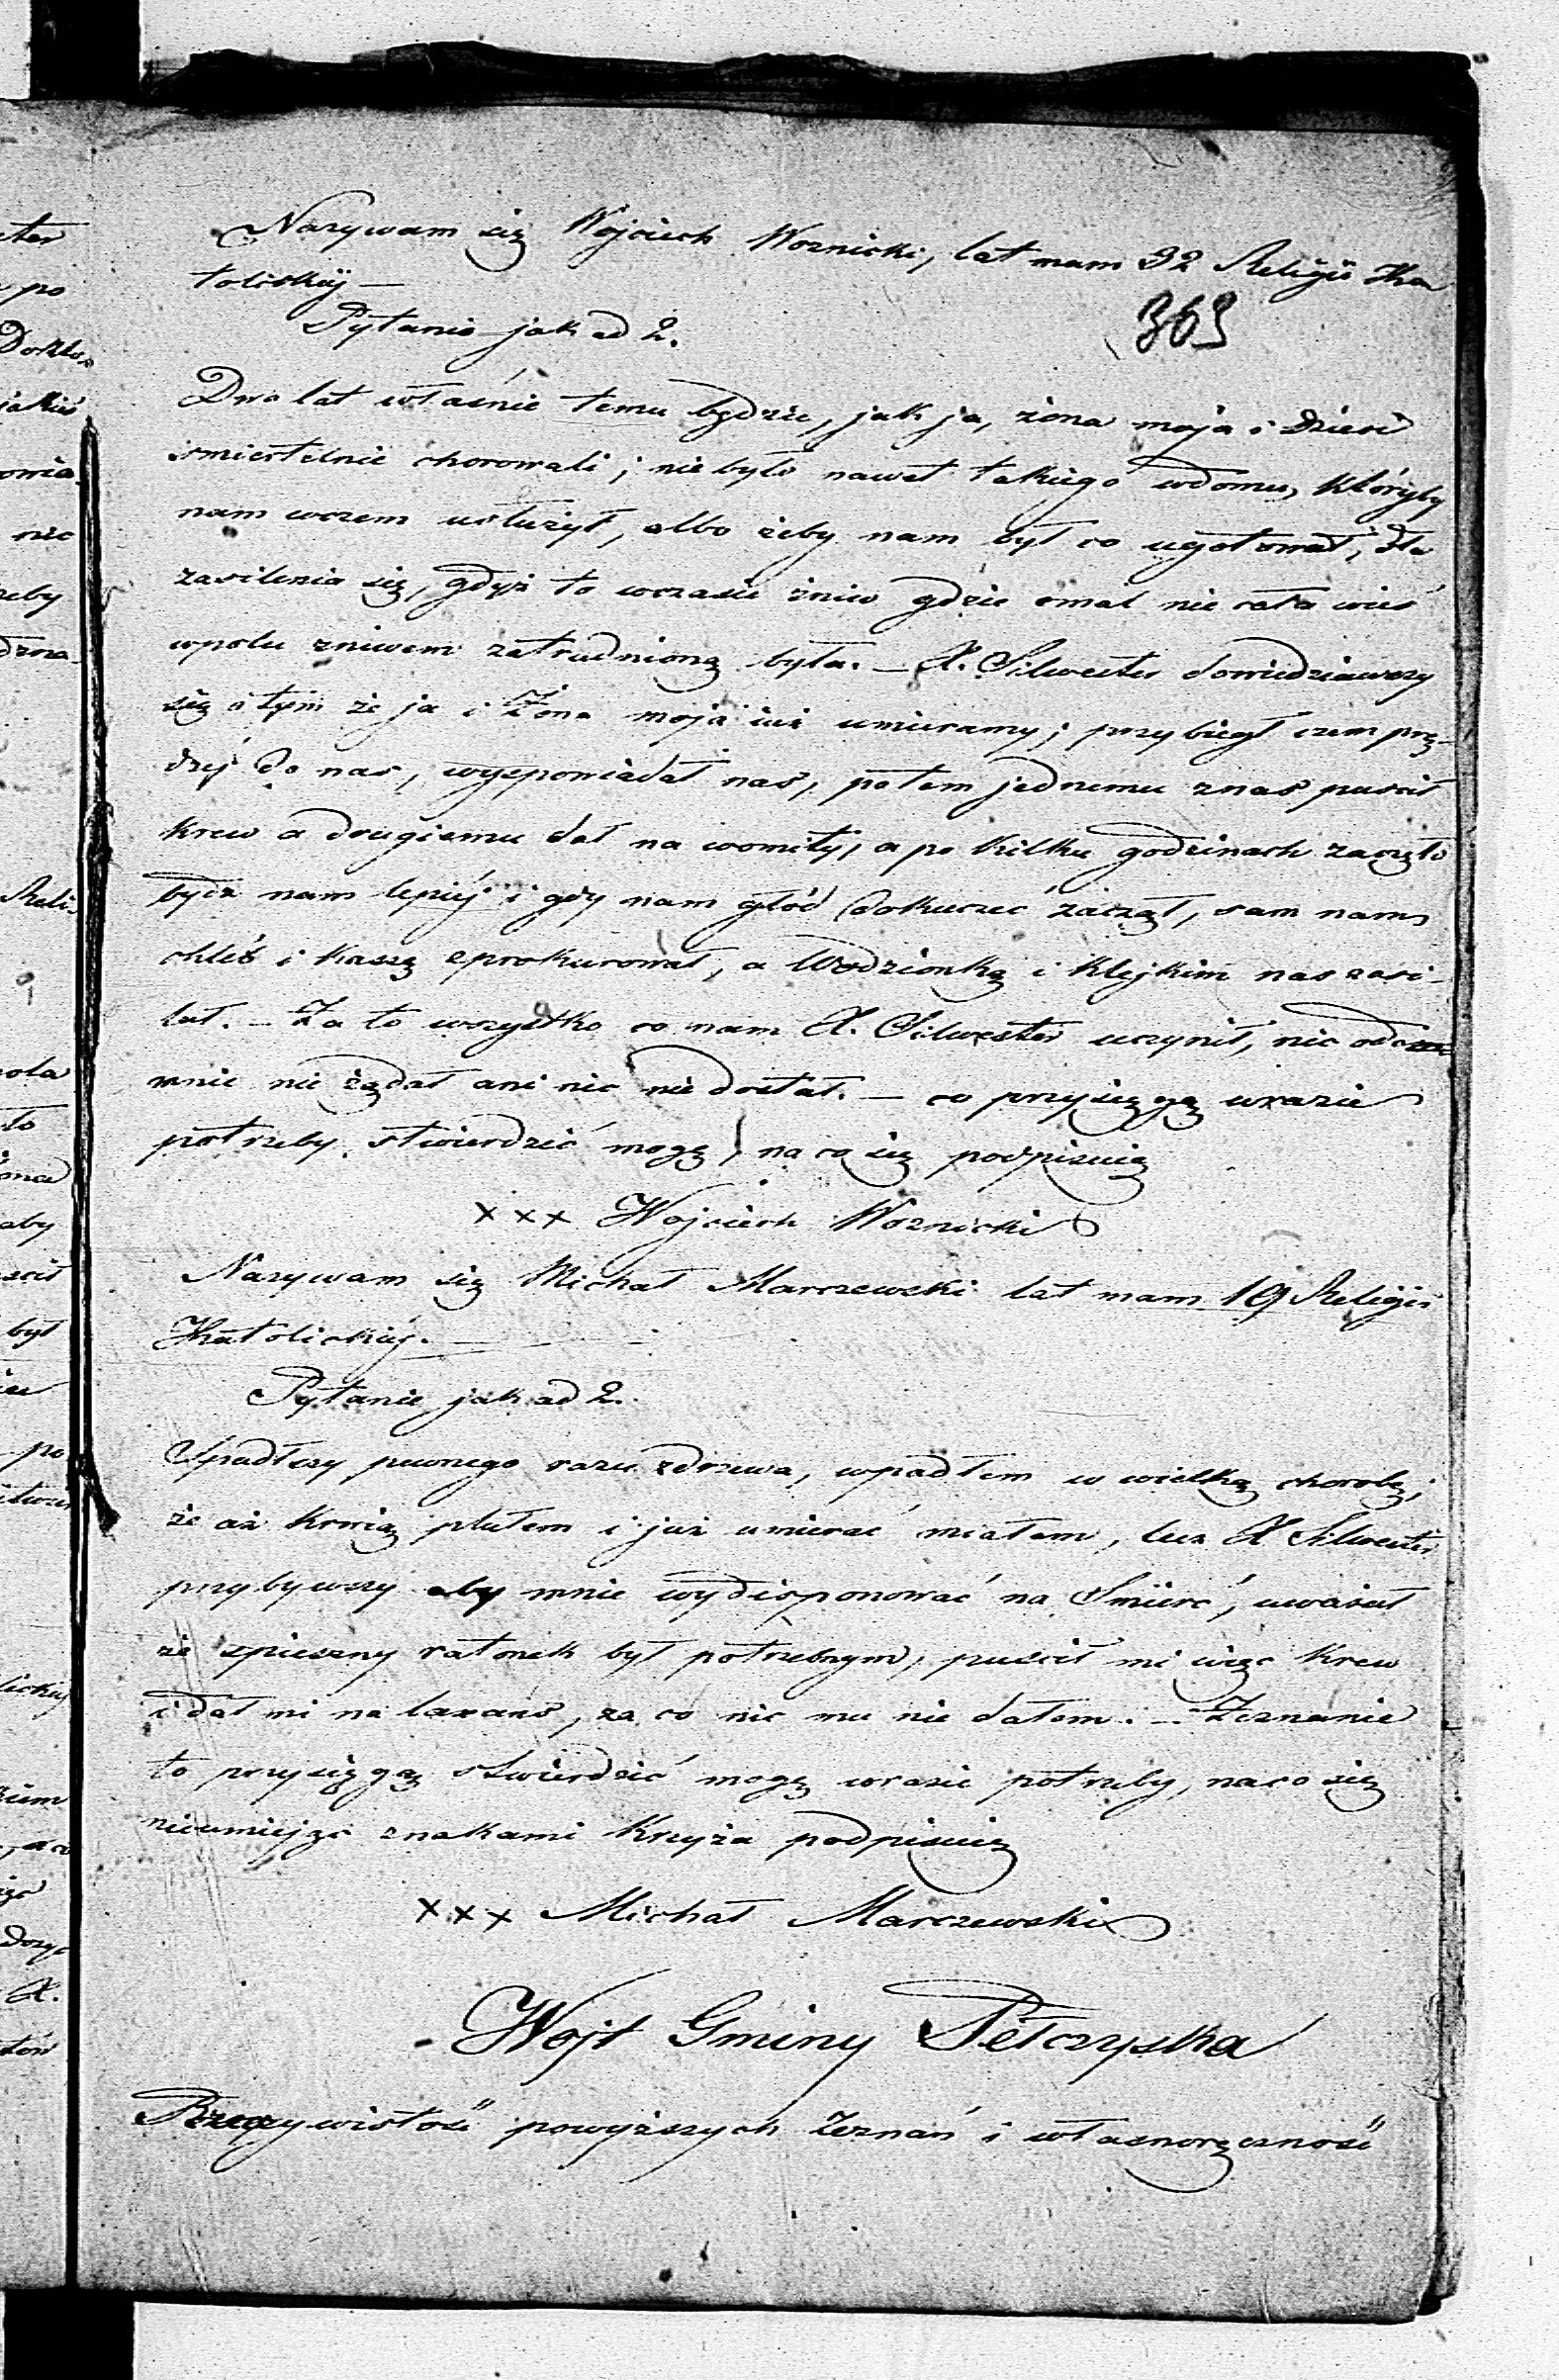 Nazywam się Wojciech Woznicki, lat mam 32 Religii Ka
tolickiy —
363
Pytanie jak ad 2.
Dwa lat własnie temu będzie, jak ja, żona moja i Dzieci
smiertelnie chorowali; nie było nawet takiego wdomu, któryby
nam wczem usłużył, albo żeby nam był co ugotował, dla
zasilenia się, gdyż to wczasie żniw gdzie omal nie cała wieś
wpolu żniwem zatrudnioną była. — X. Silwester dowiedziawszy
się o tym że ja i Żona moja iuż umieramy; przybiegł czem prę-
dzéj do nas, wyspowiadał nas, potem jednemu znas puscił
krew a drugiemu dał na womity, a po kilku godzinach zaczęło
bydź nam lepiéj i gdy nam głód dokuczać zaczął, sam nam
chléb i kaszę zprokurował, a Wodzionką i klejkim nas zasi-
lał. — Za to wszystko co nam X. Silwester uczynił, nic od
mnie nie żądał ani nic nie dostał. — co przysięgą wrazie
potrzeby stwierdzić mogę, na co się podpisuię
xxx Wojciech Woznicki
Nazywam się Michał Marczewski lat mam 19 Religii
Katolickiéy. —
Pytanie jak ad 2.
Spadłszy pewnego razu zdrzewa, wpadłem w wielką chorobę,
że aż krwią plułem i już umierać miałem, lecz X Silwester
przybywszy aby mnie wydisponować na Smierć, uważał
że spieszny ratonek był potrzebnym, puscił mi więc krew
i dał mi na laxans, za co nic mu nie dałem. — Zeznanie
to przysięgą stwierdzić mogę wrazie potrzeby, naco się
nieumiejąc znakami krzyża podpisuię
xxx Michał Marczewski
Wojt Gminy Pełczyska
Rzeczywistość powyższych Zeznań i własnoręczność